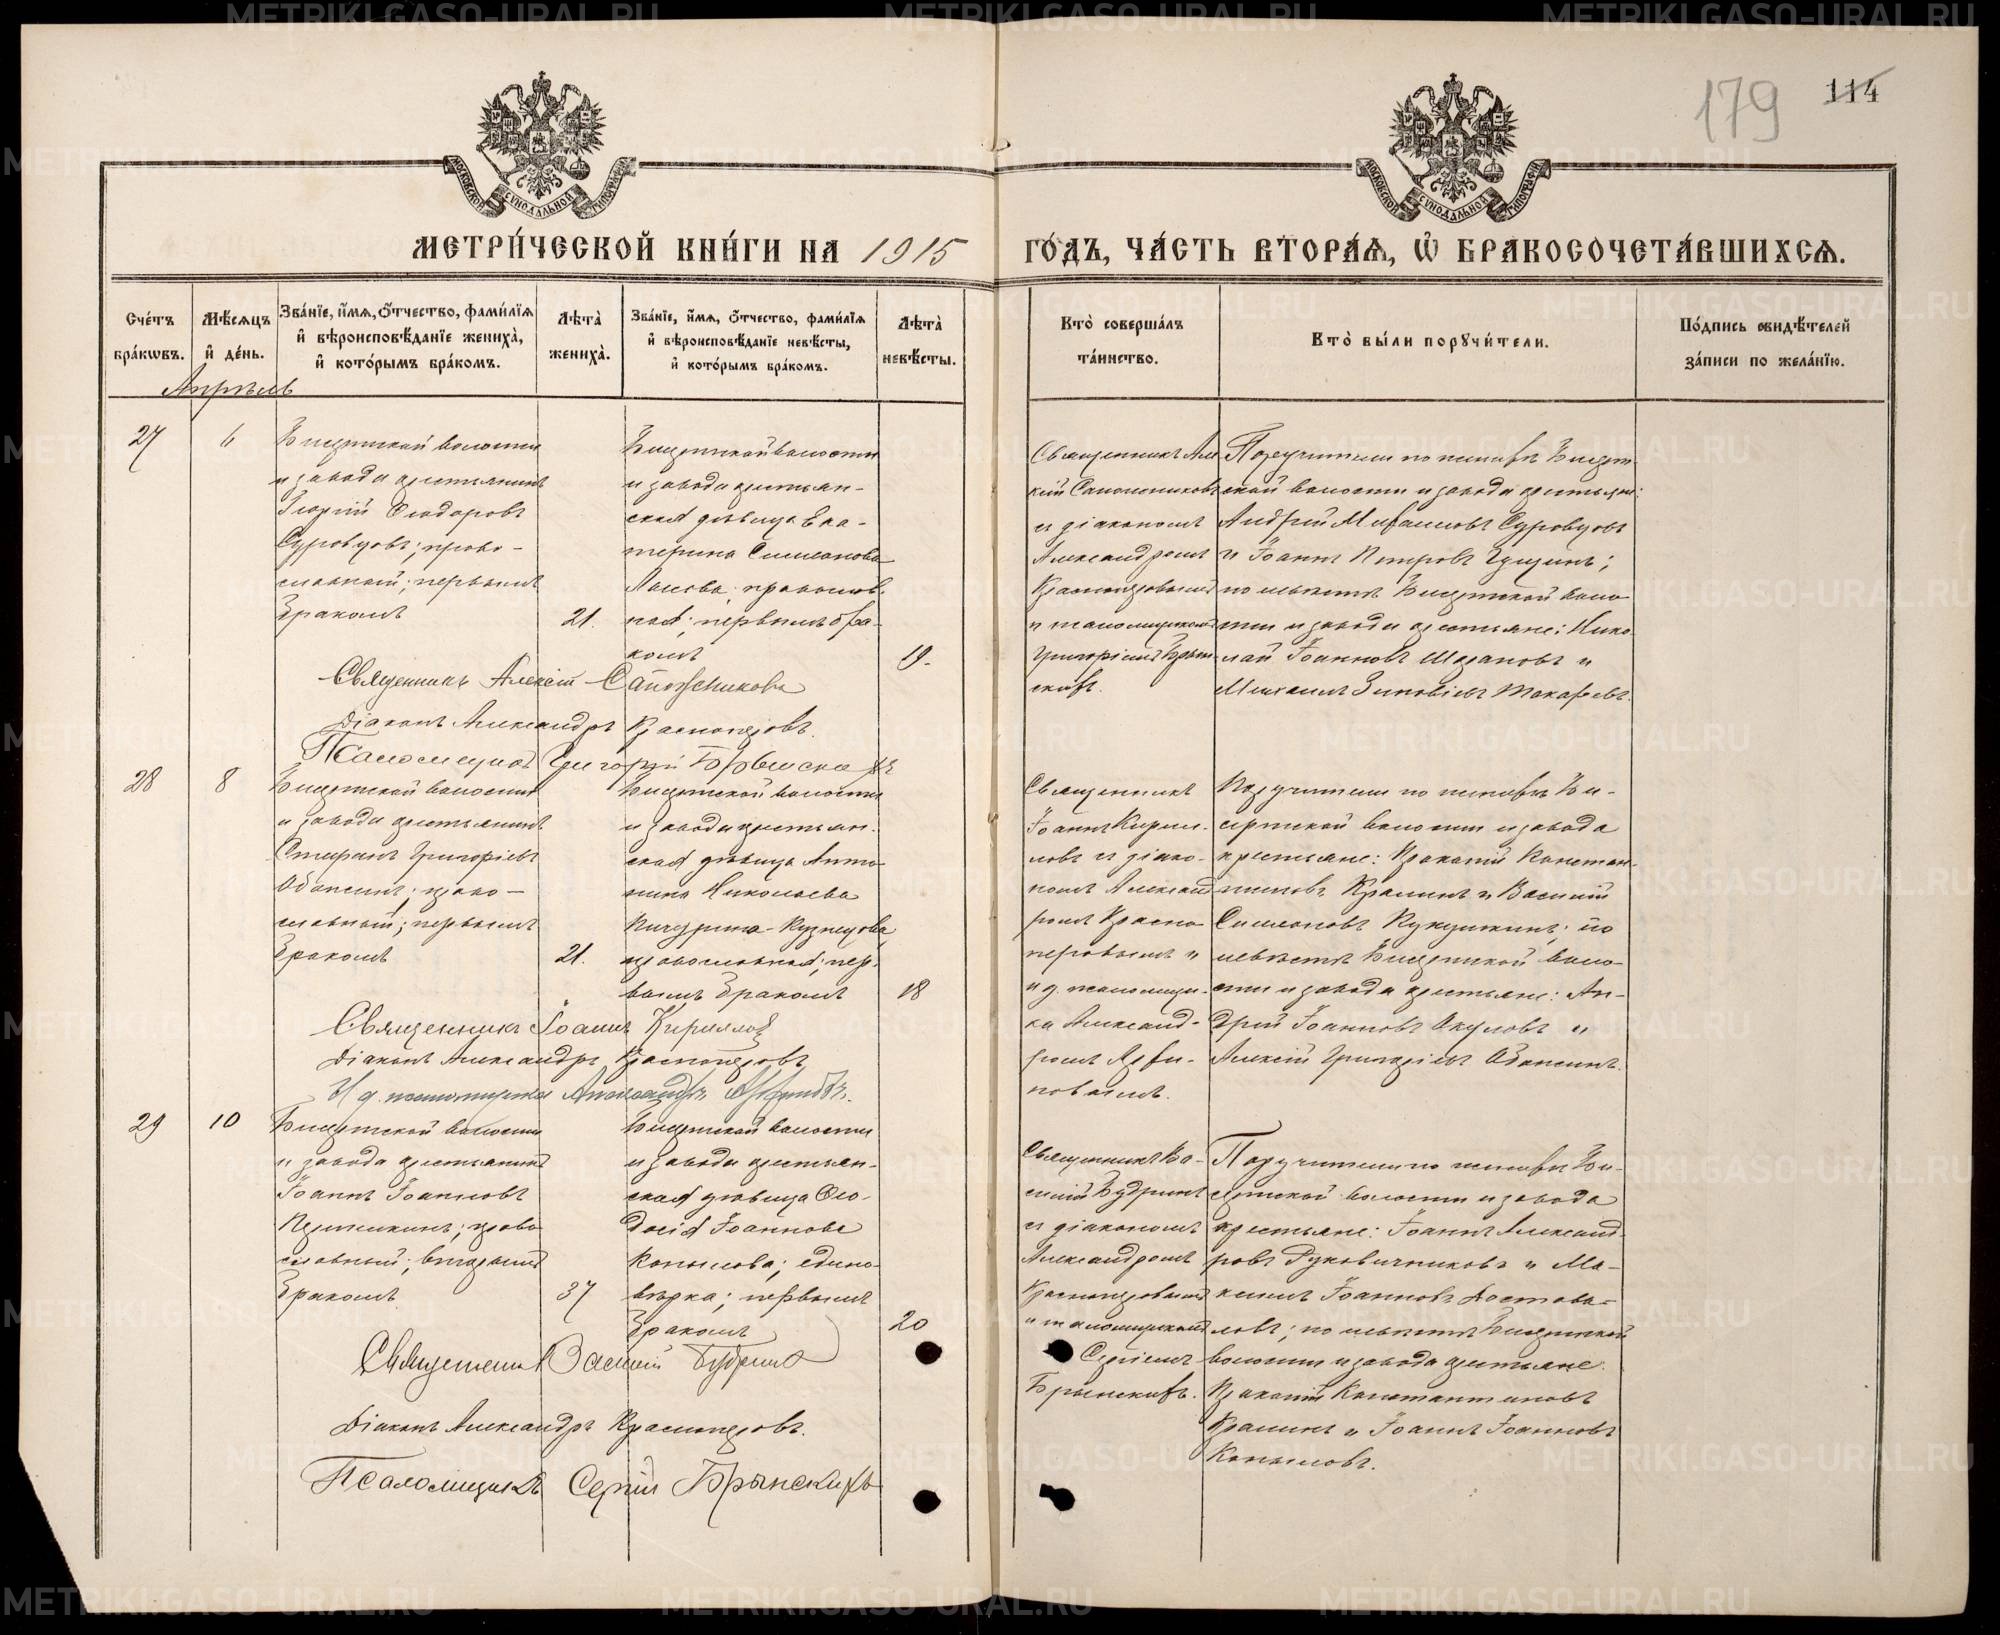 179
114
МОСКОВСКОЙ СѴНОДАЛЬНОЙ ТИПОГРАФІИ
МОСКОВСКОЙ СѴНОДАЛЬНОЙ ТИПОГРАФІИ
МЕТРИ́ЧЕСКОЙ КНИ́ГИ НА 1915 ГО́ДЪ, ЧА́СТЬ ВТОРА́Ѧ, Ѡ҆ БРАКОСОЧЕТА́ВШИХСѦ.
Сче́тъ бра́кѡвъ.
Мѣ́сяцъ и҆ де́нь.
Зва́нїе, и҆́мѧ, ѻ҆́тчество, фами́лїѧ и҆ вѣроисповѣ́данїе жениха̀, и҆ кото́рымъ бра́комъ.
Лѣта̀ жениха̀.
Зва́нїе, и҆́мѧ, ѻ҆́тчество, фами́лїѧ и҆ вѣроисповѣ́данїе невѣ́сты, и҆ кото́рымъ бра́комъ.
Лѣта̀ невѣ́сты.
Кто̀ соверша́лъ та́инство.
Кто̀ бы́ли порꙋчи́тели.
По́дпись свидѣ́телей за́писи по жела́нїю.
Апрѣль
27
6
Бисертской волости
и завода крестьянинъ
Георгій Ѳеодоровъ
Суровцовъ; право-
славный; первымъ
бракомъ
21.
Бисертской волости
и завода крестьян-
ская дѣвица Ека-
терина Симеонова
православ-
ная; первымъ бра-
комъ
19.
Священникъ Але
ксій Сапожниковъ
съ діакономъ
Александромъ
Краснопёровымъ
и псаломщикомъ
Григоріемъ Брын-
скихъ.
Поручители по женихѣ Бисерт-
ской волости и завода крестьяне:
Андрей Михаиловъ Суровцовъ
и Іоаннъ Петровъ
по невѣстѣ Бисертской воло-
сти и завода крестьяне: Нико-
лай Іоанновъ Шазановъ и
Михаилъ Зиновіевъ Токаревъ.
Священникъ Алексій Сапожниковъ
Діаконъ Александръ Красноперовъ.
Псаломщикъ Григорій Брынскихъ
28
8
Бисертской волости
и завода крестьянинъ
Стефанъ Григоріевъ
Обвинцевъ; право-
славный; первымъ
бракомъ
21.
Бисертской волости
и завода крестьян-
ская дѣвица Анто-
нина Николаева
Кичурина-Кузнецова
православная; пер-
вымъ бракомъ
18
Священникъ
Іоаннъ Кирил-
ловъ съ діако-
номъ Александ
ромъ Красно-
перовымъ и
и. д. псаломщи-
ка Александ-
ромъ
новымъ.
Поручители по женихѣ Би-
сертской волости и завода
крестьяне: Ираклій Констан-
тиновъ и Василій
Симеоновъ Кукушкинъ; по
невѣстѣ Бисертской воло-
сти и завода крестьяне: Ан-
дрей Іоанновъ Окуловъ и
Алексій Григоріевъ
Священникъ Іоаннъ Кирилловъ
Діаконъ Александръ Красноперовъ
И. д. псаломщика Александръ
29
10
Бисертской волости
и завода крестьянинъ
Іоаннъ Іоанновъ
право
славный; вторымъ
бракомъ
37
Бисертской волости
и завода крестьян-
ская дѣвица Ѳео-
досія Іоаннова
Копылова; едино-
вѣрка; первымъ
бракомъ
20
Священникъ Ва-
силій Будринъ
съ діакономъ
Александромъ
Красноперовымъ
и псаломщикомъ
Сергіемъ
Брынскихъ.
Поручители по женихѣ Би-
сертской волости и завода
крестьяне: Іоаннъ Александ
ровъ Рукавичниковъ и Ма-
ксимъ Іоанновъ Достова-
ловъ; по невѣстѣ Бисертской
волости и завода крестьяне.
Ираклій Константиновъ
и Іоаннъ Іоанновъ
Копыловъ.
Священникъ Василій Будринъ
Діаконъ Александръ Красноперовъ.
Псаломщикъ Сергій Брынскихъ
METRIKI.GASO-URAL.RU